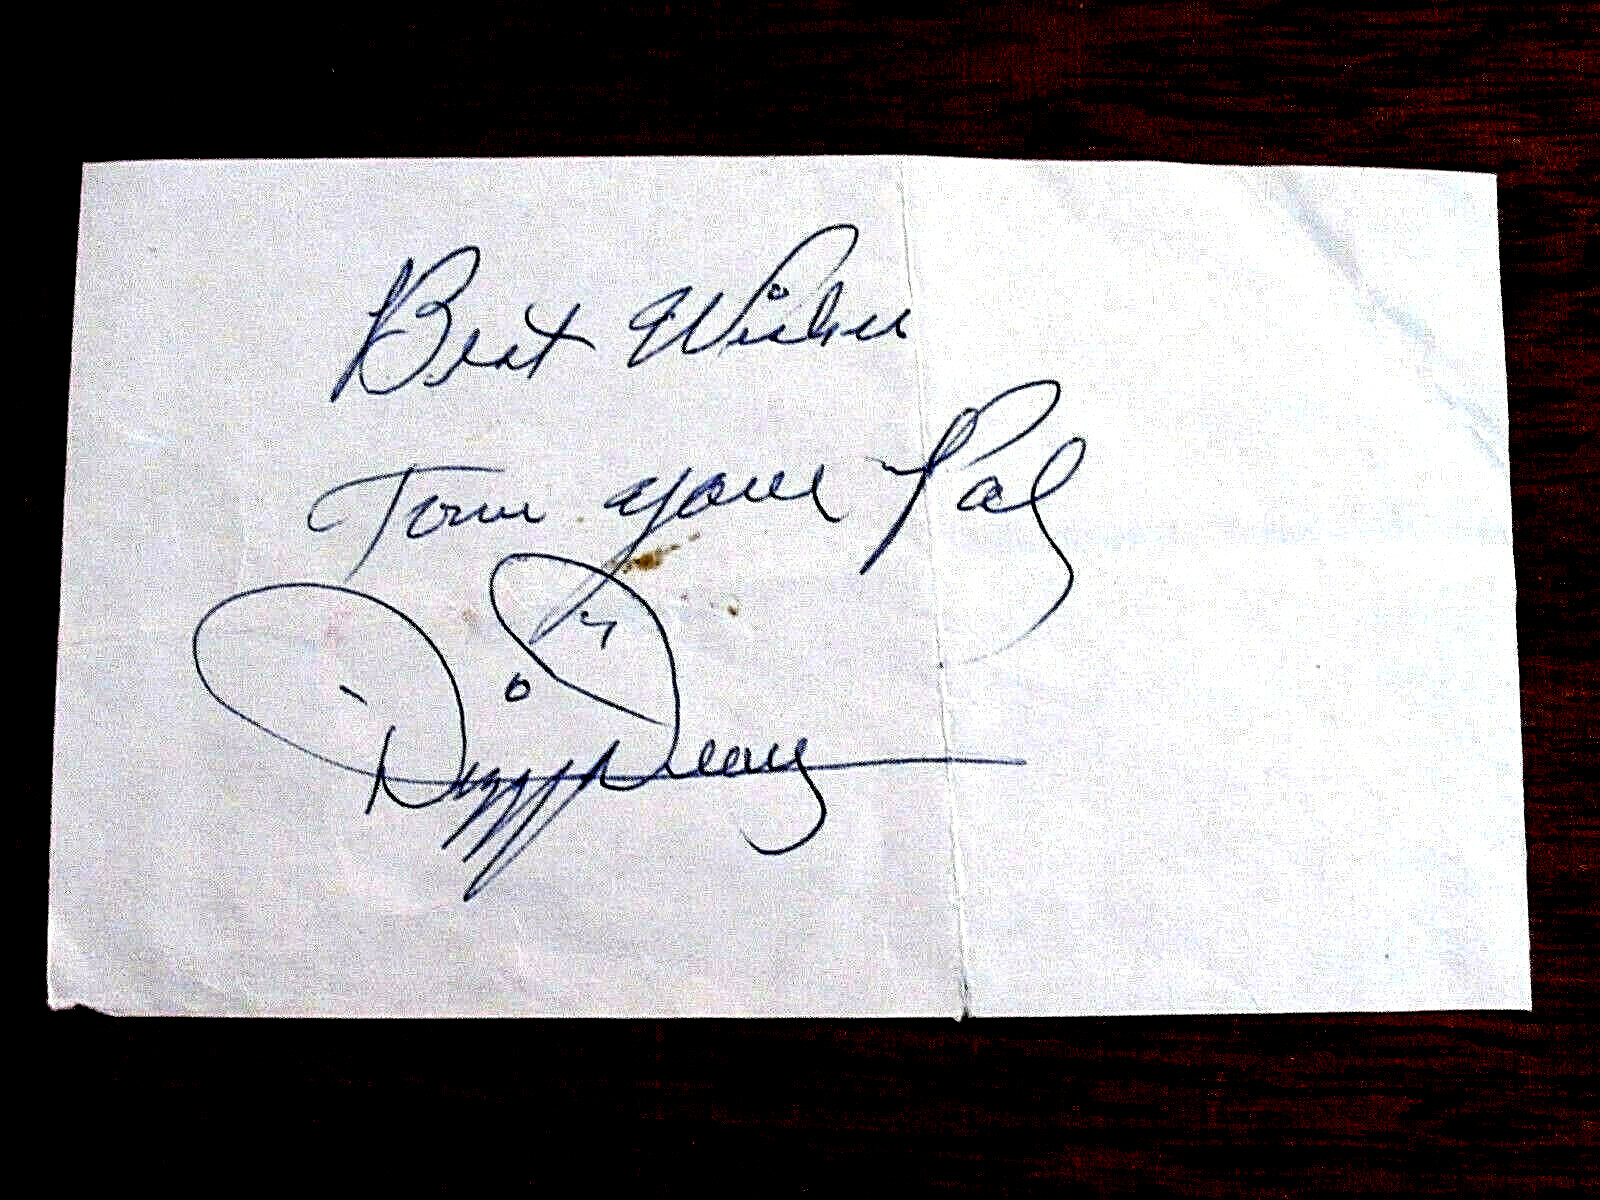 Best Wishes
Tom your Pal
Dizzy Dean